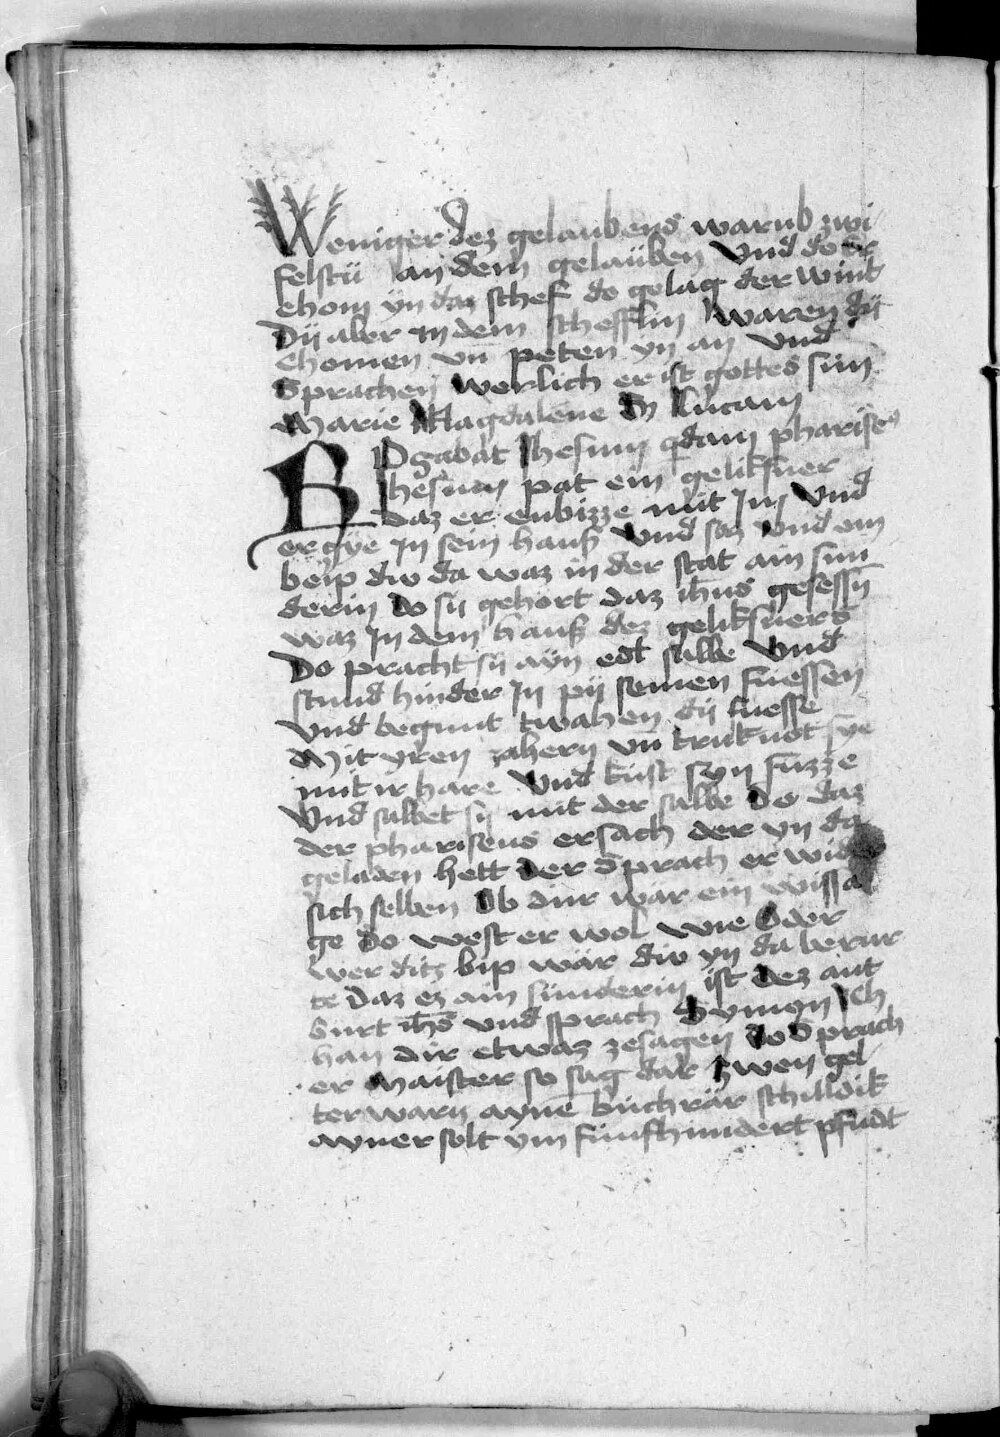 Weniger dez gelaubens warub zwi
felstu an dem gelauben Vnd do er
chom yn daz schef do gelag der wint
Dÿ aber In dem schefflin waren dÿ
Chomen vn̄ peten yn an vnd
Sprachen werlich er ist gottes sun
Marie Magdalene S Lucam
Rogabat Ihesum qdam phariseꝰ
Ihesum pat ein geliksner
daz er enbizze mit Im Vnd
er gye In sein hauß Vnd saz vnd ein
beip div da waz in der stat ain sun
derin Do sÿ gehort daz ih̄us gesessn̄
waz In dem hauß dez geliksners
Do pracht sÿ ayn edl salbe Vnd
stund hinder In pÿ seinen fuessen
Vnd begunt twahen dÿ fuesse
Mit yren zahern vn̄ truknot sye
mit ir hare Vnd kust syn fuzze
Vnd salbet sÿ mit der salbe Do daz
der phariseus ersach der yn da
geladen hett Der Sprach er wid
sich selben Ob dirr wär ein wissa
ge Do west er wol wie Oder
wer ditz bip wär div yn da berur
te daz ez ain sunderin ist Dez ant
burt ih̄s vnd sprach Symon Ich
han dir etwaz zesagen Do Sprach
er Maister so sag dar zwen gel
ter warn ayne͞ buchrär schuldik
ayner solt vm funfhundert pfu͞dt